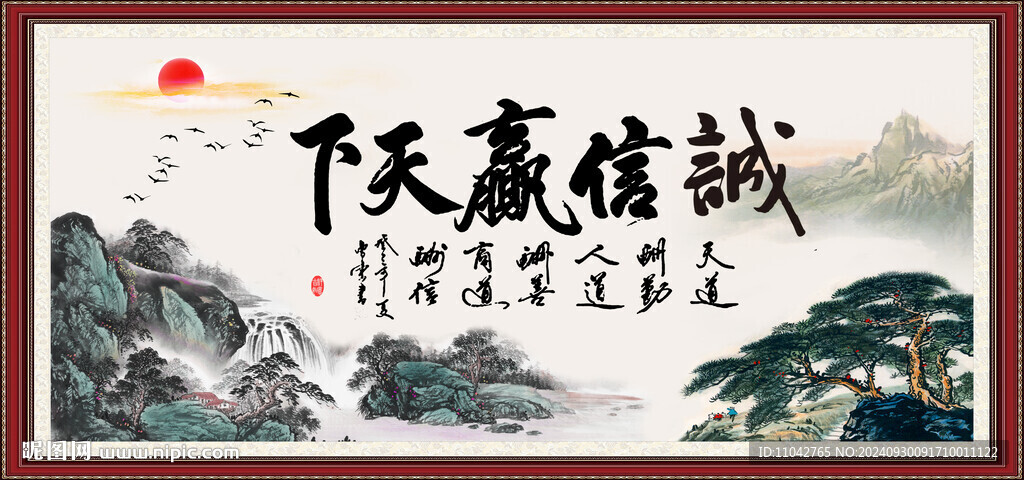 誠信贏天下
天道
酬勤
人道
酬善
商道
酬信
昵图网 www.nipic.com
ID:11042765 NO:20240930091710011122